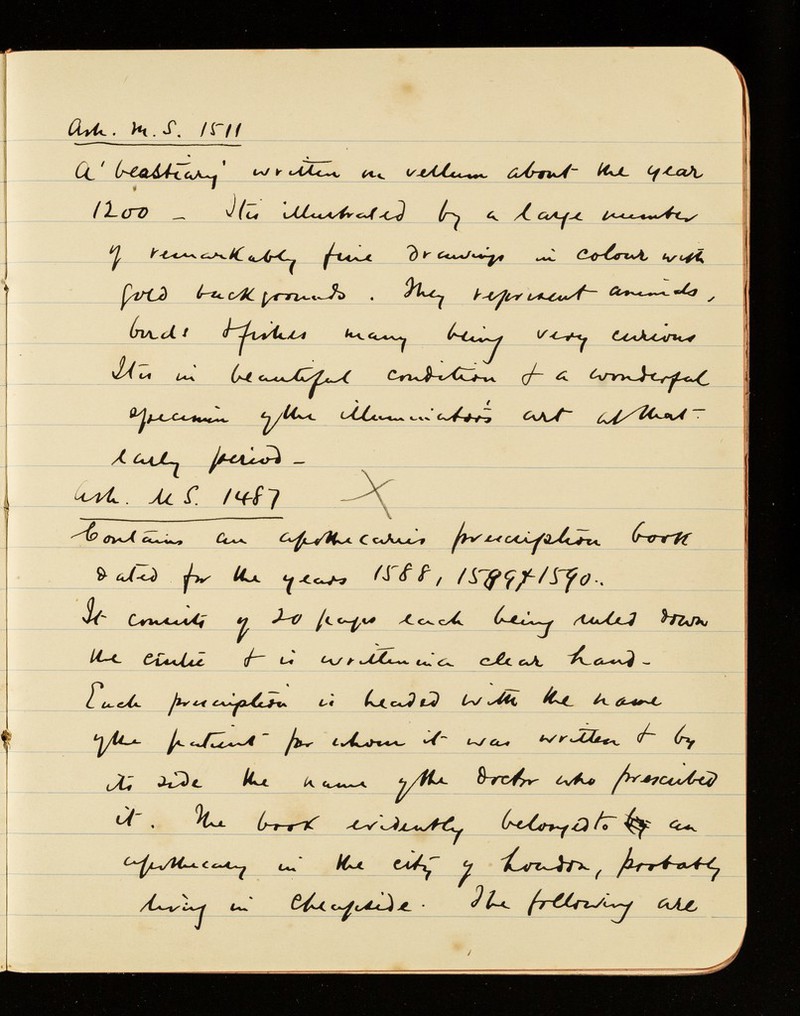 Ash. M.S. 1511
A 'beastiary' written on vellum about the year
1200 - It is illustrated by a large number
of remarkably fine drawings in colour with
gold backgrounds. They represent animals,
birds & fishes many being very curious
It is in beautiful condition & a wonderful
specimen of the illuminator's art at that
early period -
Ash. M S. 1487 X
Contains an apothecaries prescription book
dated for the years 1588, 1589 & 1590.
It consists of 20 pages each being ruled down
the centre & is written in a clear hand -
Each prescription is headed with the name
of the patient for whom it was written & by
its side the name of the doctor who prescribed
it. The book evidently belonged to by an
apothecary in the city of London, probably
living in Cheapside. The following are